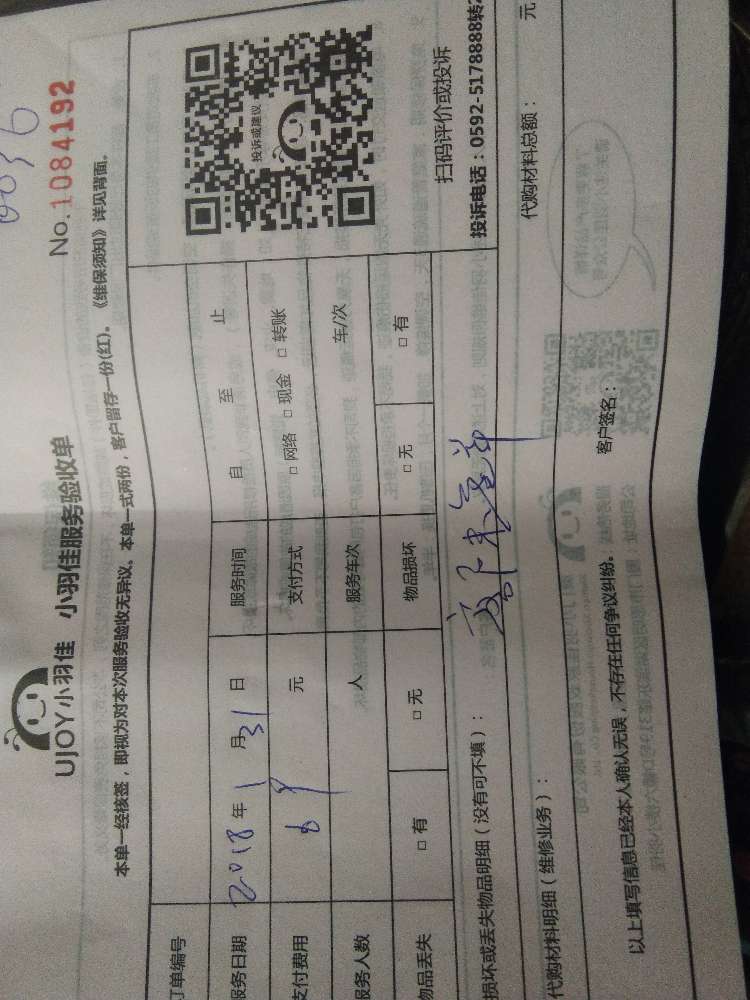 UJOY小羽佳 小羽佳服务验收单
No.1084192
本单一经核签，即视为对本次服务验收无异议。本单一式两份，客户留存一份(红)。《维保须知》详见背面。
订单编号
服务日期 2018年1月31日 服务时间 自 至 止
支付费用 69元 支付方式 □网络 □现金 □转账
服务人数 人 服务车次 车/次
物品丢失 □有 □无 物品损坏 □无 □有
投诉或建议
扫码评价或投诉
投诉电话：0592-5178888转2
损坏或丢失物品明细（没有可不填）：
代购材料明细（维修业务）： 代购材料总额： 元
以上填写信息已经本人确认无误，不存在任何争议纠纷。 客户签名：